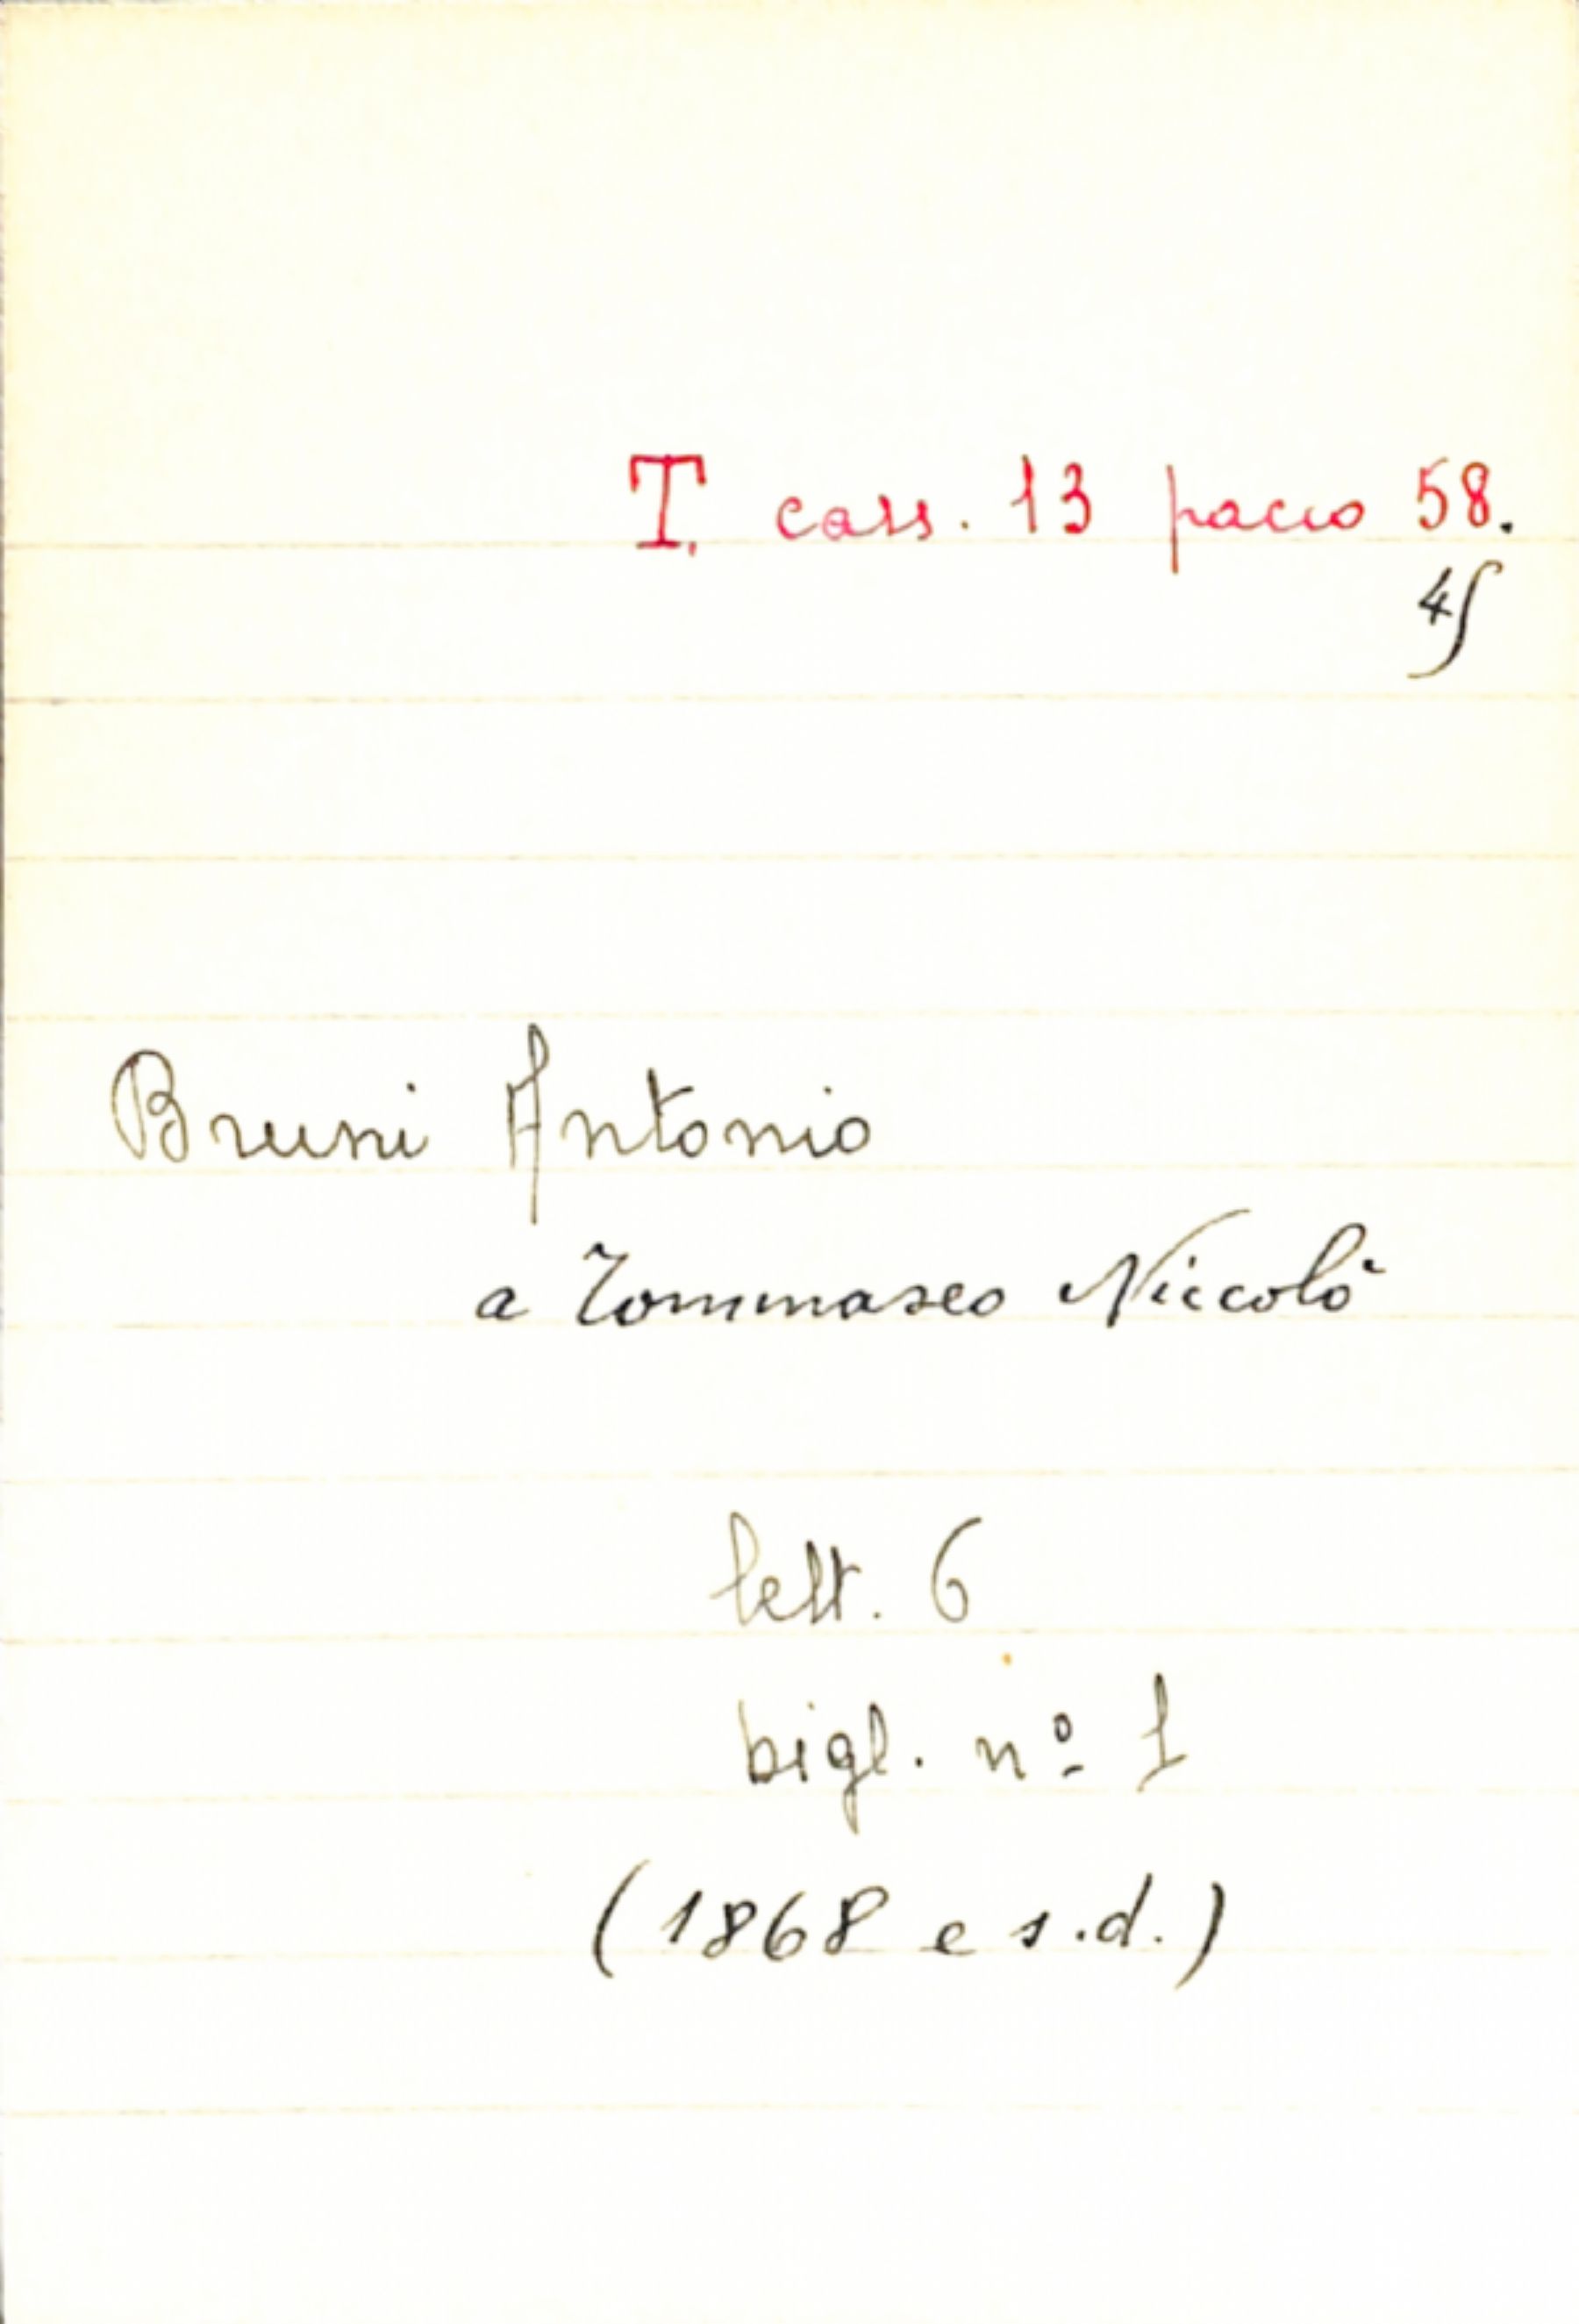 T. cass. 13 pacco 58.
45
Bruni Antonio
a Tommaseo Niccolò
lett. 6
bigl. nº 1
(1868 e s.d.)